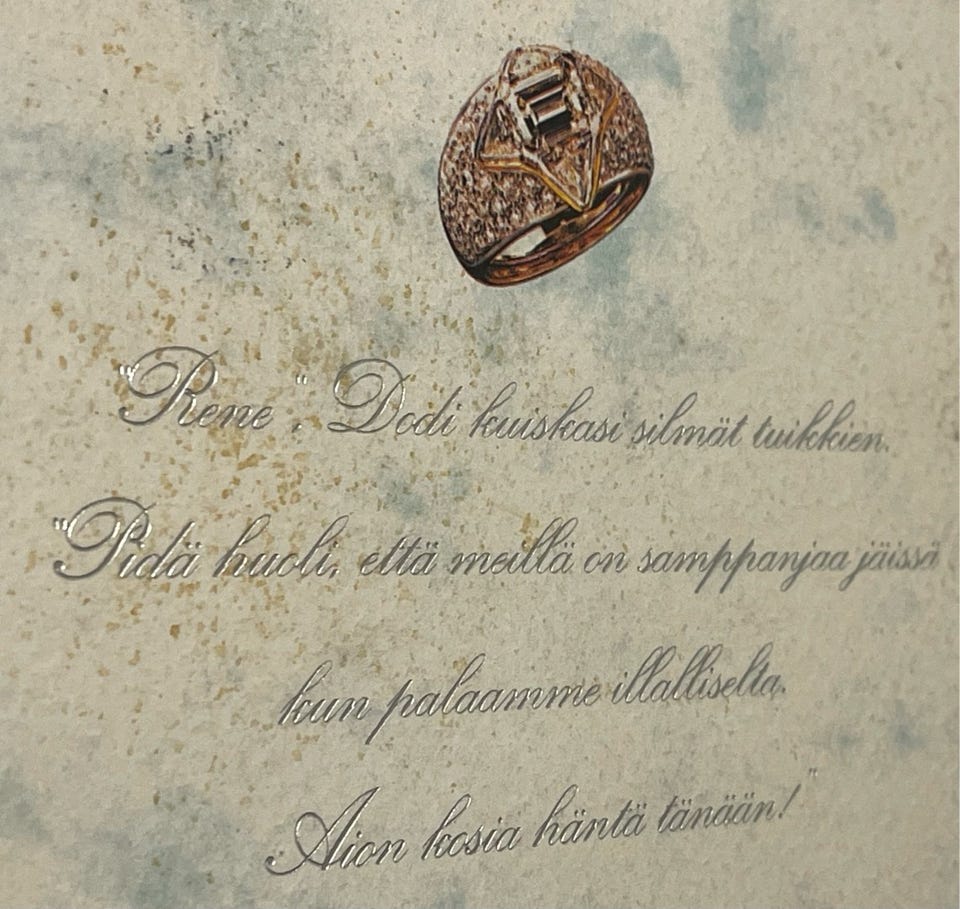 "Rene", Dodi kuiskasi silmät tuikkien.
"Pidä huoli, että meillä on samppanjaa jäissä
kun palaamme illalliselta.
Aion kosia häntä tänään!"